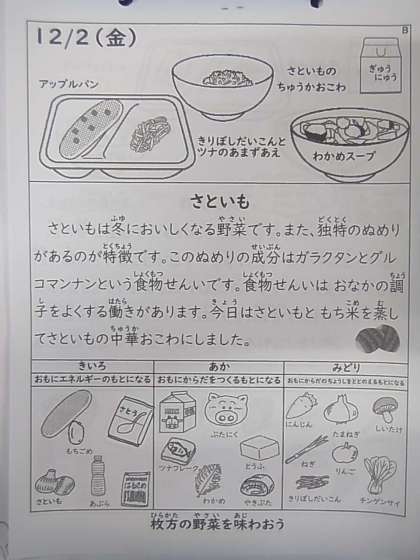 12/2(金)
B
アップルパン
さといもの
ちゅうかおこわ
ぎゅう
にゅう
きりぼしだいこんと
ツナのあまずあえ
わかめスープ
さといも
さといもは冬においしくなる野菜です。また、独特のぬめり
があるのが特徴です。このぬめりの成分はガラクタンとグル
コマンナンという食物せんいです。食物せんいは おなかの調
子をよくする働きがあります。今日はさといもと もち米を蒸し
てさといもの中華おこわにしました。
きいろ
おもにエネルギーのもとになる
もちごめ
さとう
さといも
あぶら
はるさめ
あか
おもにからだをつくるもとになる
ぶたにく
ツナフレーク
とうふ
わかめ
やきぶた
みどり
おもにからだのちょうしをととのえるもとになる
にんじん
たまねぎ
しいたけ
ねぎ
りんご
きりぼしだいこん
チンゲンサイ
枚方の野菜を味わおう